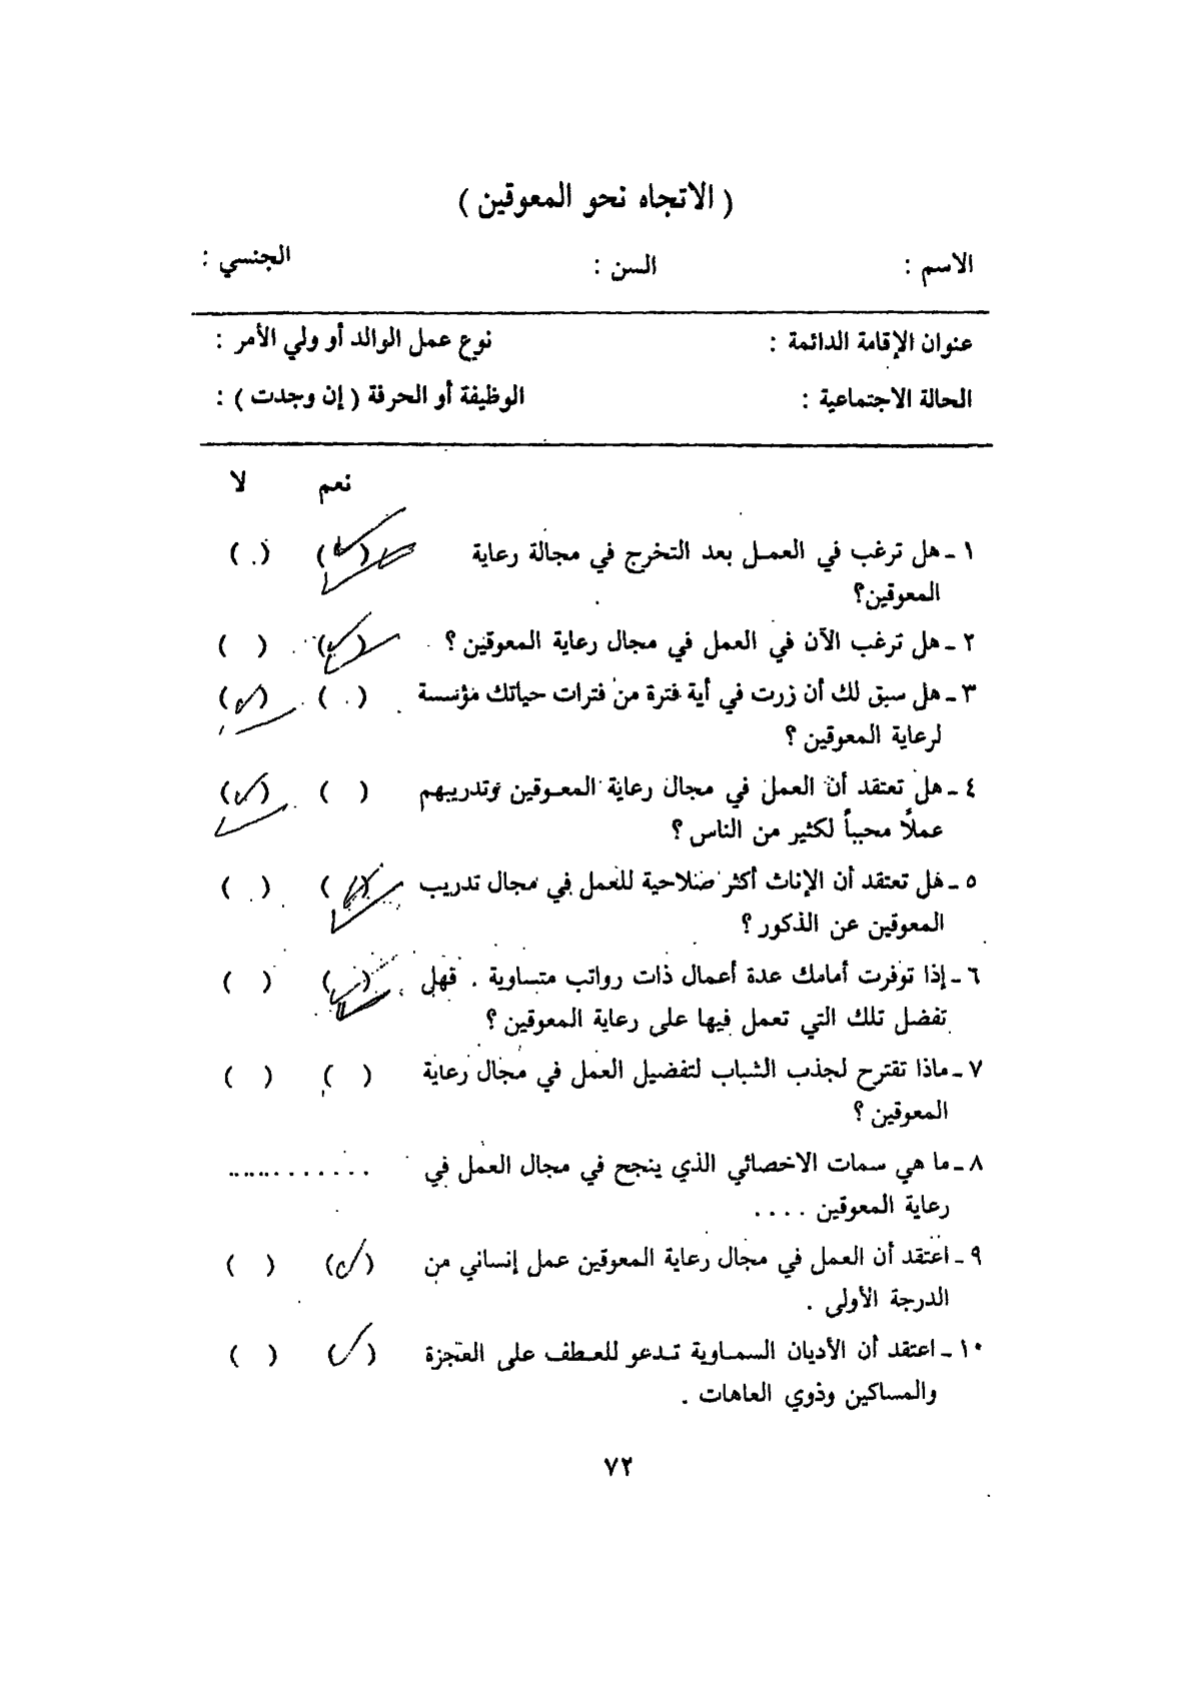 ( الاتجاه نحو المعوقين )
الاسم : السن : الجنسي :
عنوان الإقامة الدائمة : نوع عمل الوالد أو ولي الأمر :
الحالة الاجتماعية : الوظيفة أو الحرفة ( إن وجدت ) :
نعم لا
١ ـ هل ترغب في العمل بعد التخرج في مجالة رعاية ( ✓ ) ( )
المعوقين؟
٢ ـ هل ترغب الآن في العمل في مجال رعاية المعوقين ؟ ( ✓ ) ( )
٣ ـ هل سبق لك أن زرت في أية فترة من فترات حياتك مؤسسة ( ) ( ✓ )
لرعاية المعوقين ؟
٤ ـ هل تعتقد أن العمل في مجال رعاية المعوقين وتدريبهم ( ) ( ✓ )
عملًا محبباً لكثير من الناس ؟
٥ ـ هل تعتقد أن الإناث أكثر صلاحية للعمل في مجال تدريب ( ✓ ) ( )
المعوقين عن الذكور ؟
٦ ـ إذا توفرت أمامك عدة أعمال ذات رواتب متساوية . فهل ( ✓ ) ( )
تفضل تلك التي تعمل فيها على رعاية المعوقين ؟
٧ ـ ماذا تقترح لجذب الشباب لتفضيل العمل في مجال رعاية ( ) ( )
المعوقين ؟
٨ ـ ما هي سمات الاخصائي الذي ينجح في مجال العمل في .............
رعاية المعوقين ....
٩ ـ اعتقد أن العمل في مجال رعاية المعوقين عمل إنساني من ( ✓ ) ( )
الدرجة الأولى .
١٠ ـ اعتقد أن الأديان السماوية تدعو للعطف على العجزة ( ✓ ) ( )
والمساكين وذوي العاهات .
٧٢